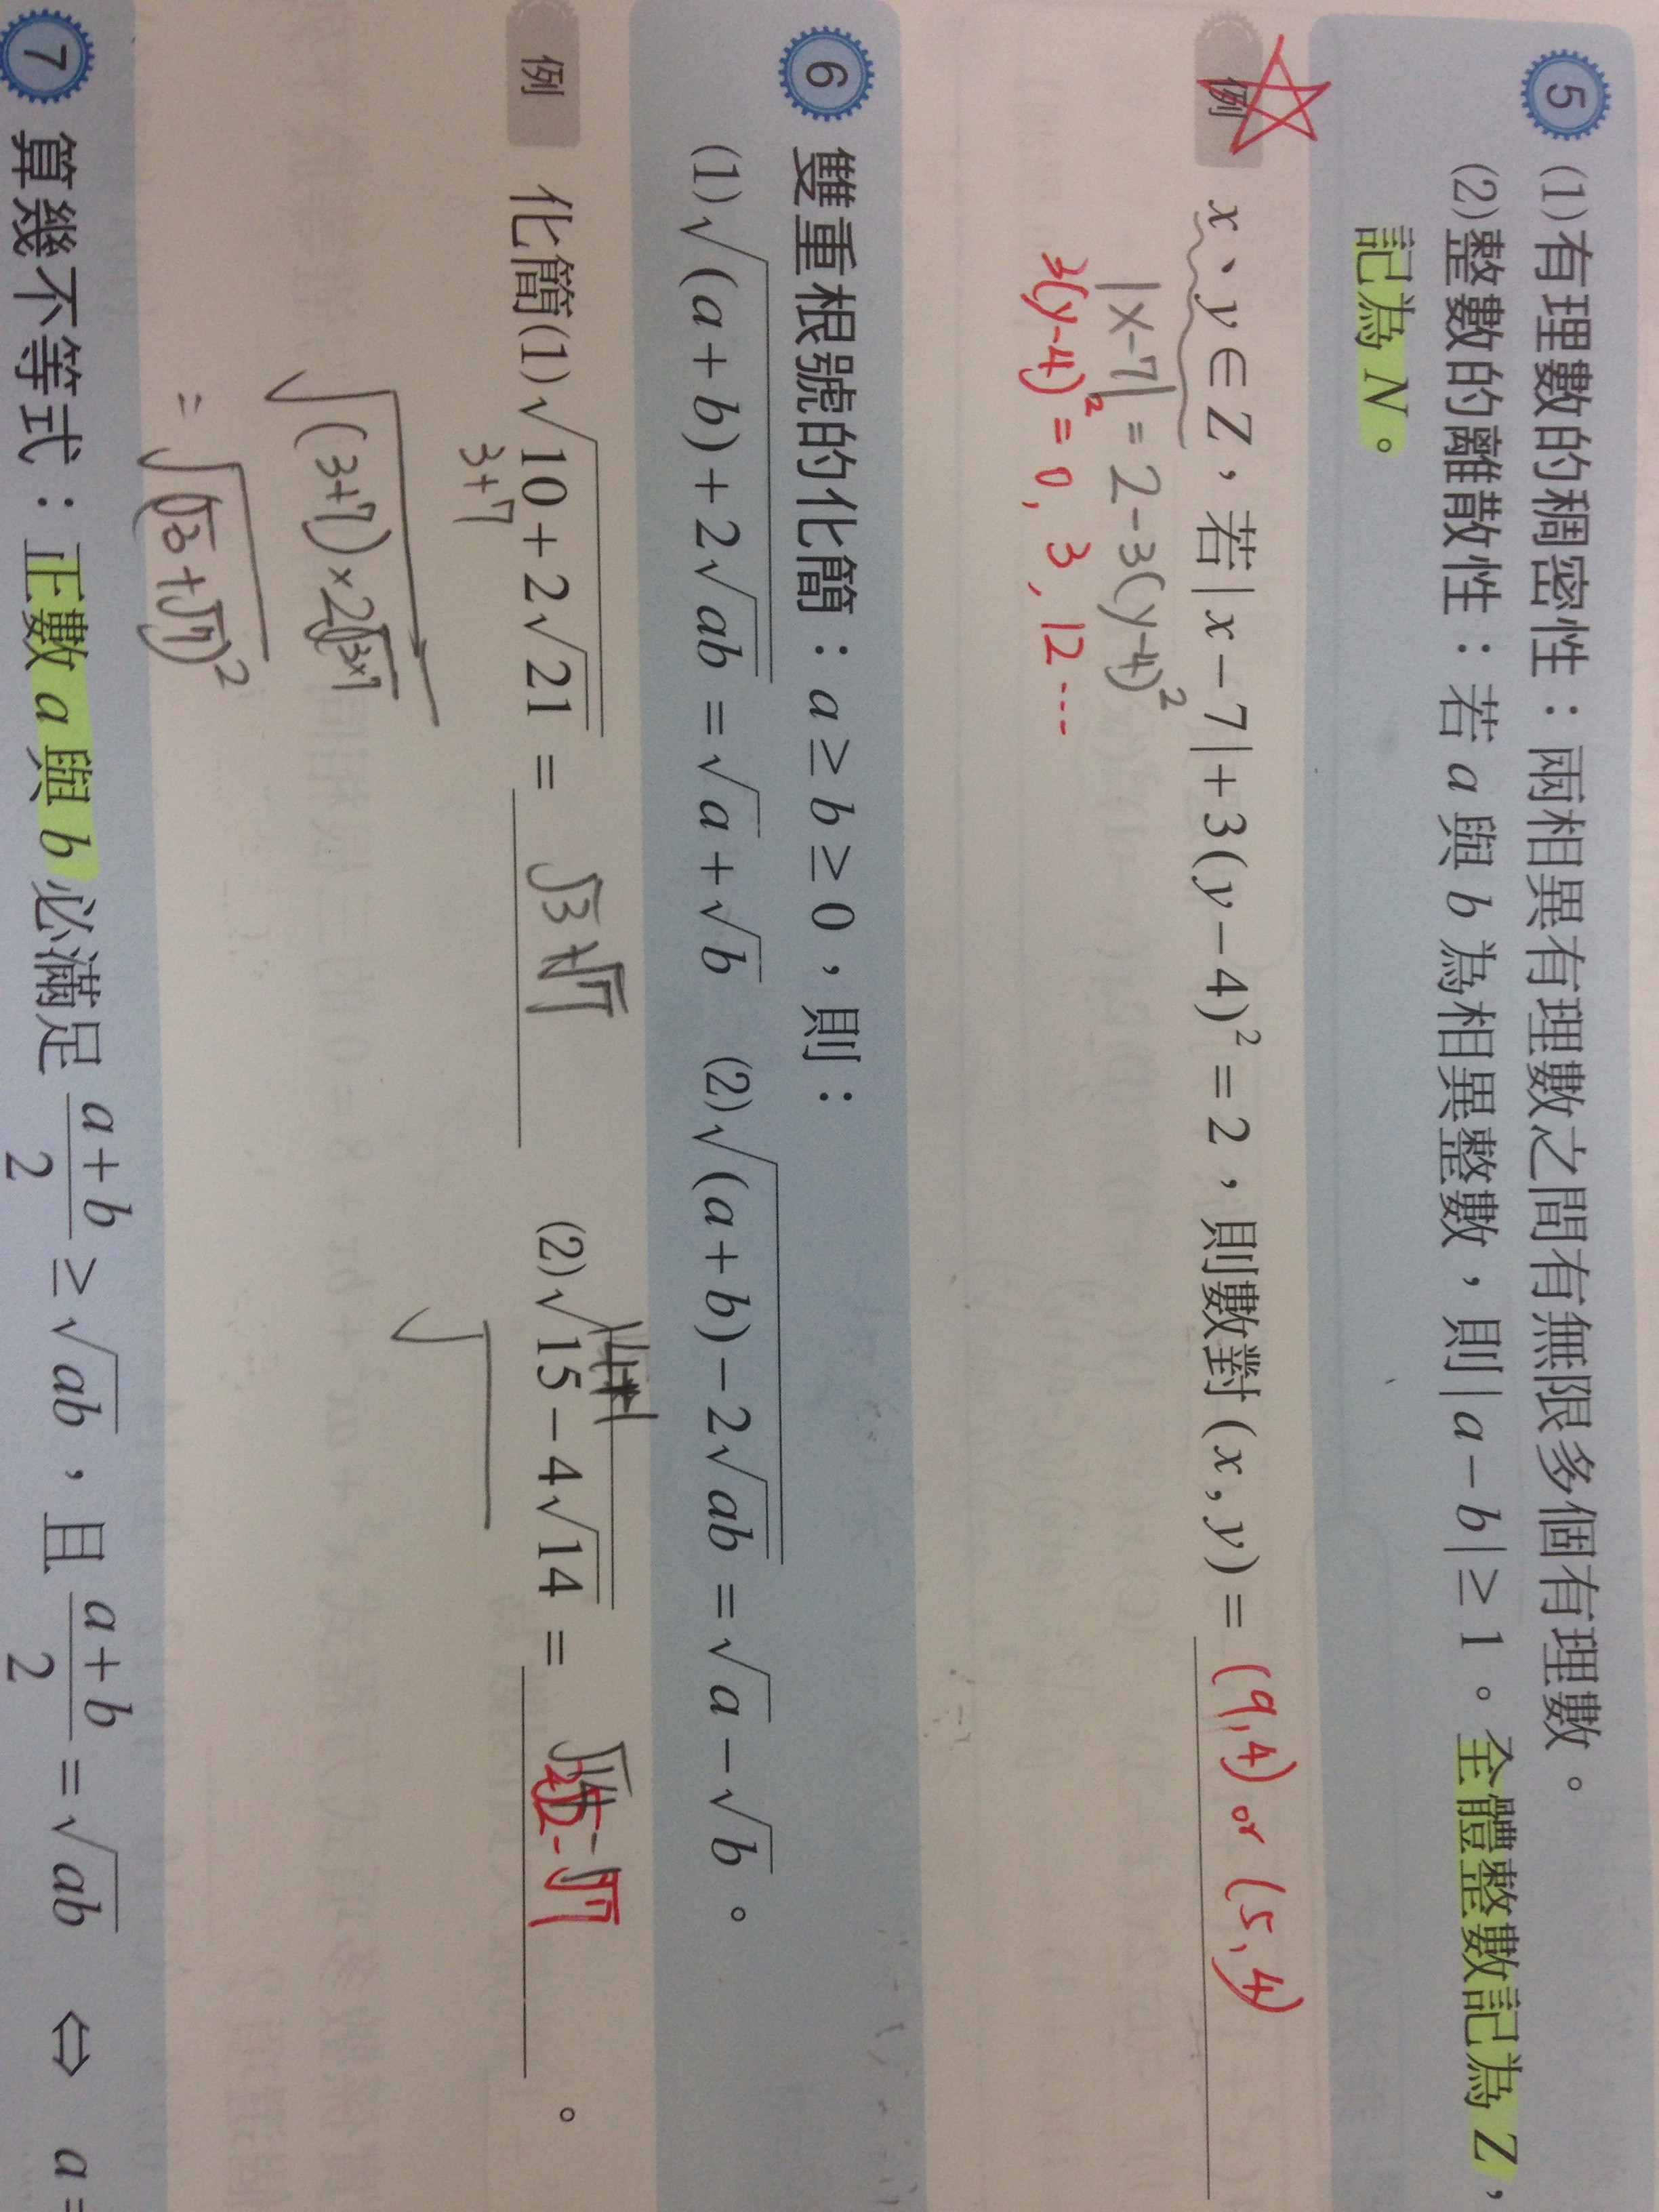 5 (1)有理數的稠密性：兩相異有理數之間有無限多個有理數。
(2)整數的離散性：若 a 與 b 為相異整數，則|a－b|≥1。全體整數記為 Z，
記為 N。
例 x、y∈Z，若|x－7|+3(y－4)²=2，則數對(x,y)= (9,4) or (5,4)
|x-7| = 2-3(y-4)²
3(y-4)² = 0, 3, 12 ...
6 雙重根號的化簡：a≥b≥0，則：
(1)√((a+b)+2√(ab))=√a+√b (2)√((a+b)－2√(ab))=√a－√b。
例 化簡(1)√(10+2√21)= √3+√7 (2)√(15－4√14)= 2√2-√7 。
3+7
√((3+7)×2√(3×7))
= √((√3+√7)²)
7 算幾不等式：正數 a 與 b 必滿足 (a+b)/2 ≥ √(ab)，且 (a+b)/2 = √(ab) ⇔ a=